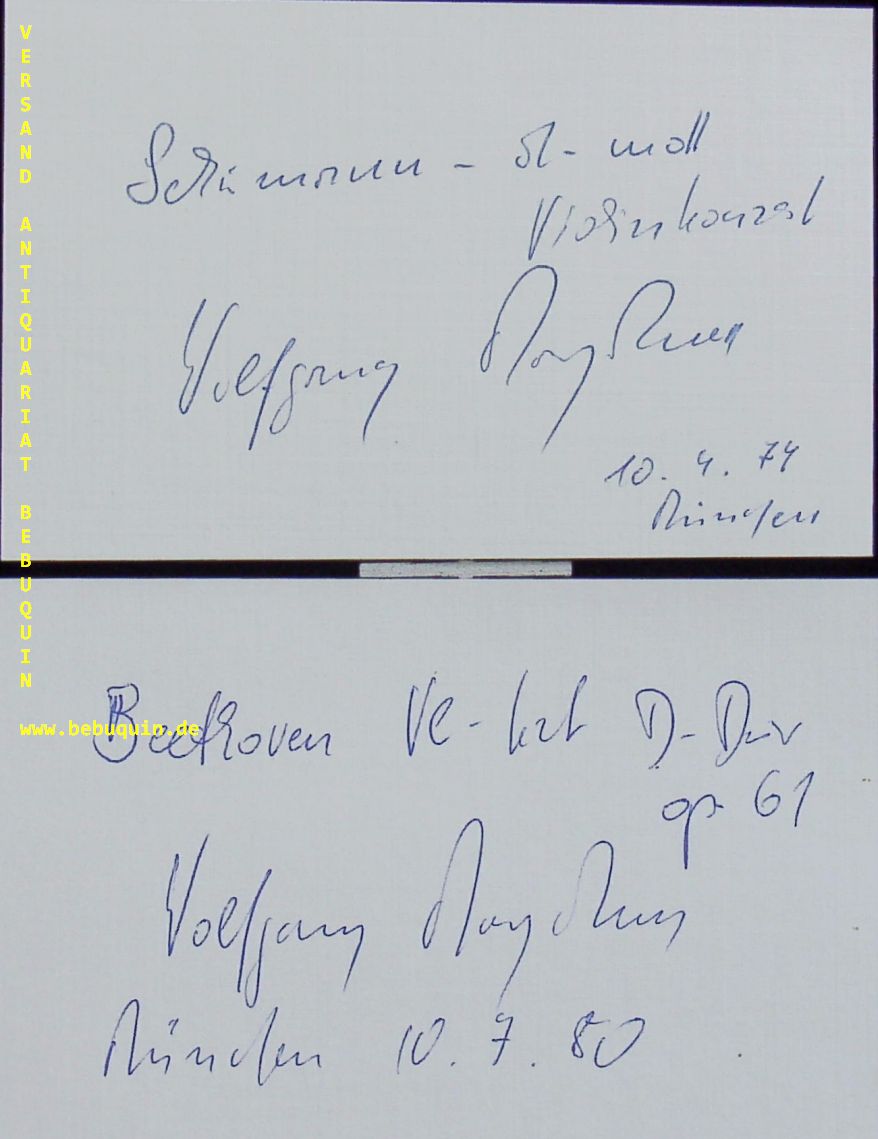 VERSAND ANTIQUARIAT BEBUQUIN
www.bebuquin.de
Schumann - d - moll
Violinkonzert
Wolfgang
10. 4. 74
München
Beethoven Vl - kzt D - Dur
op 61
Wolfgang
München 10. 7. 80